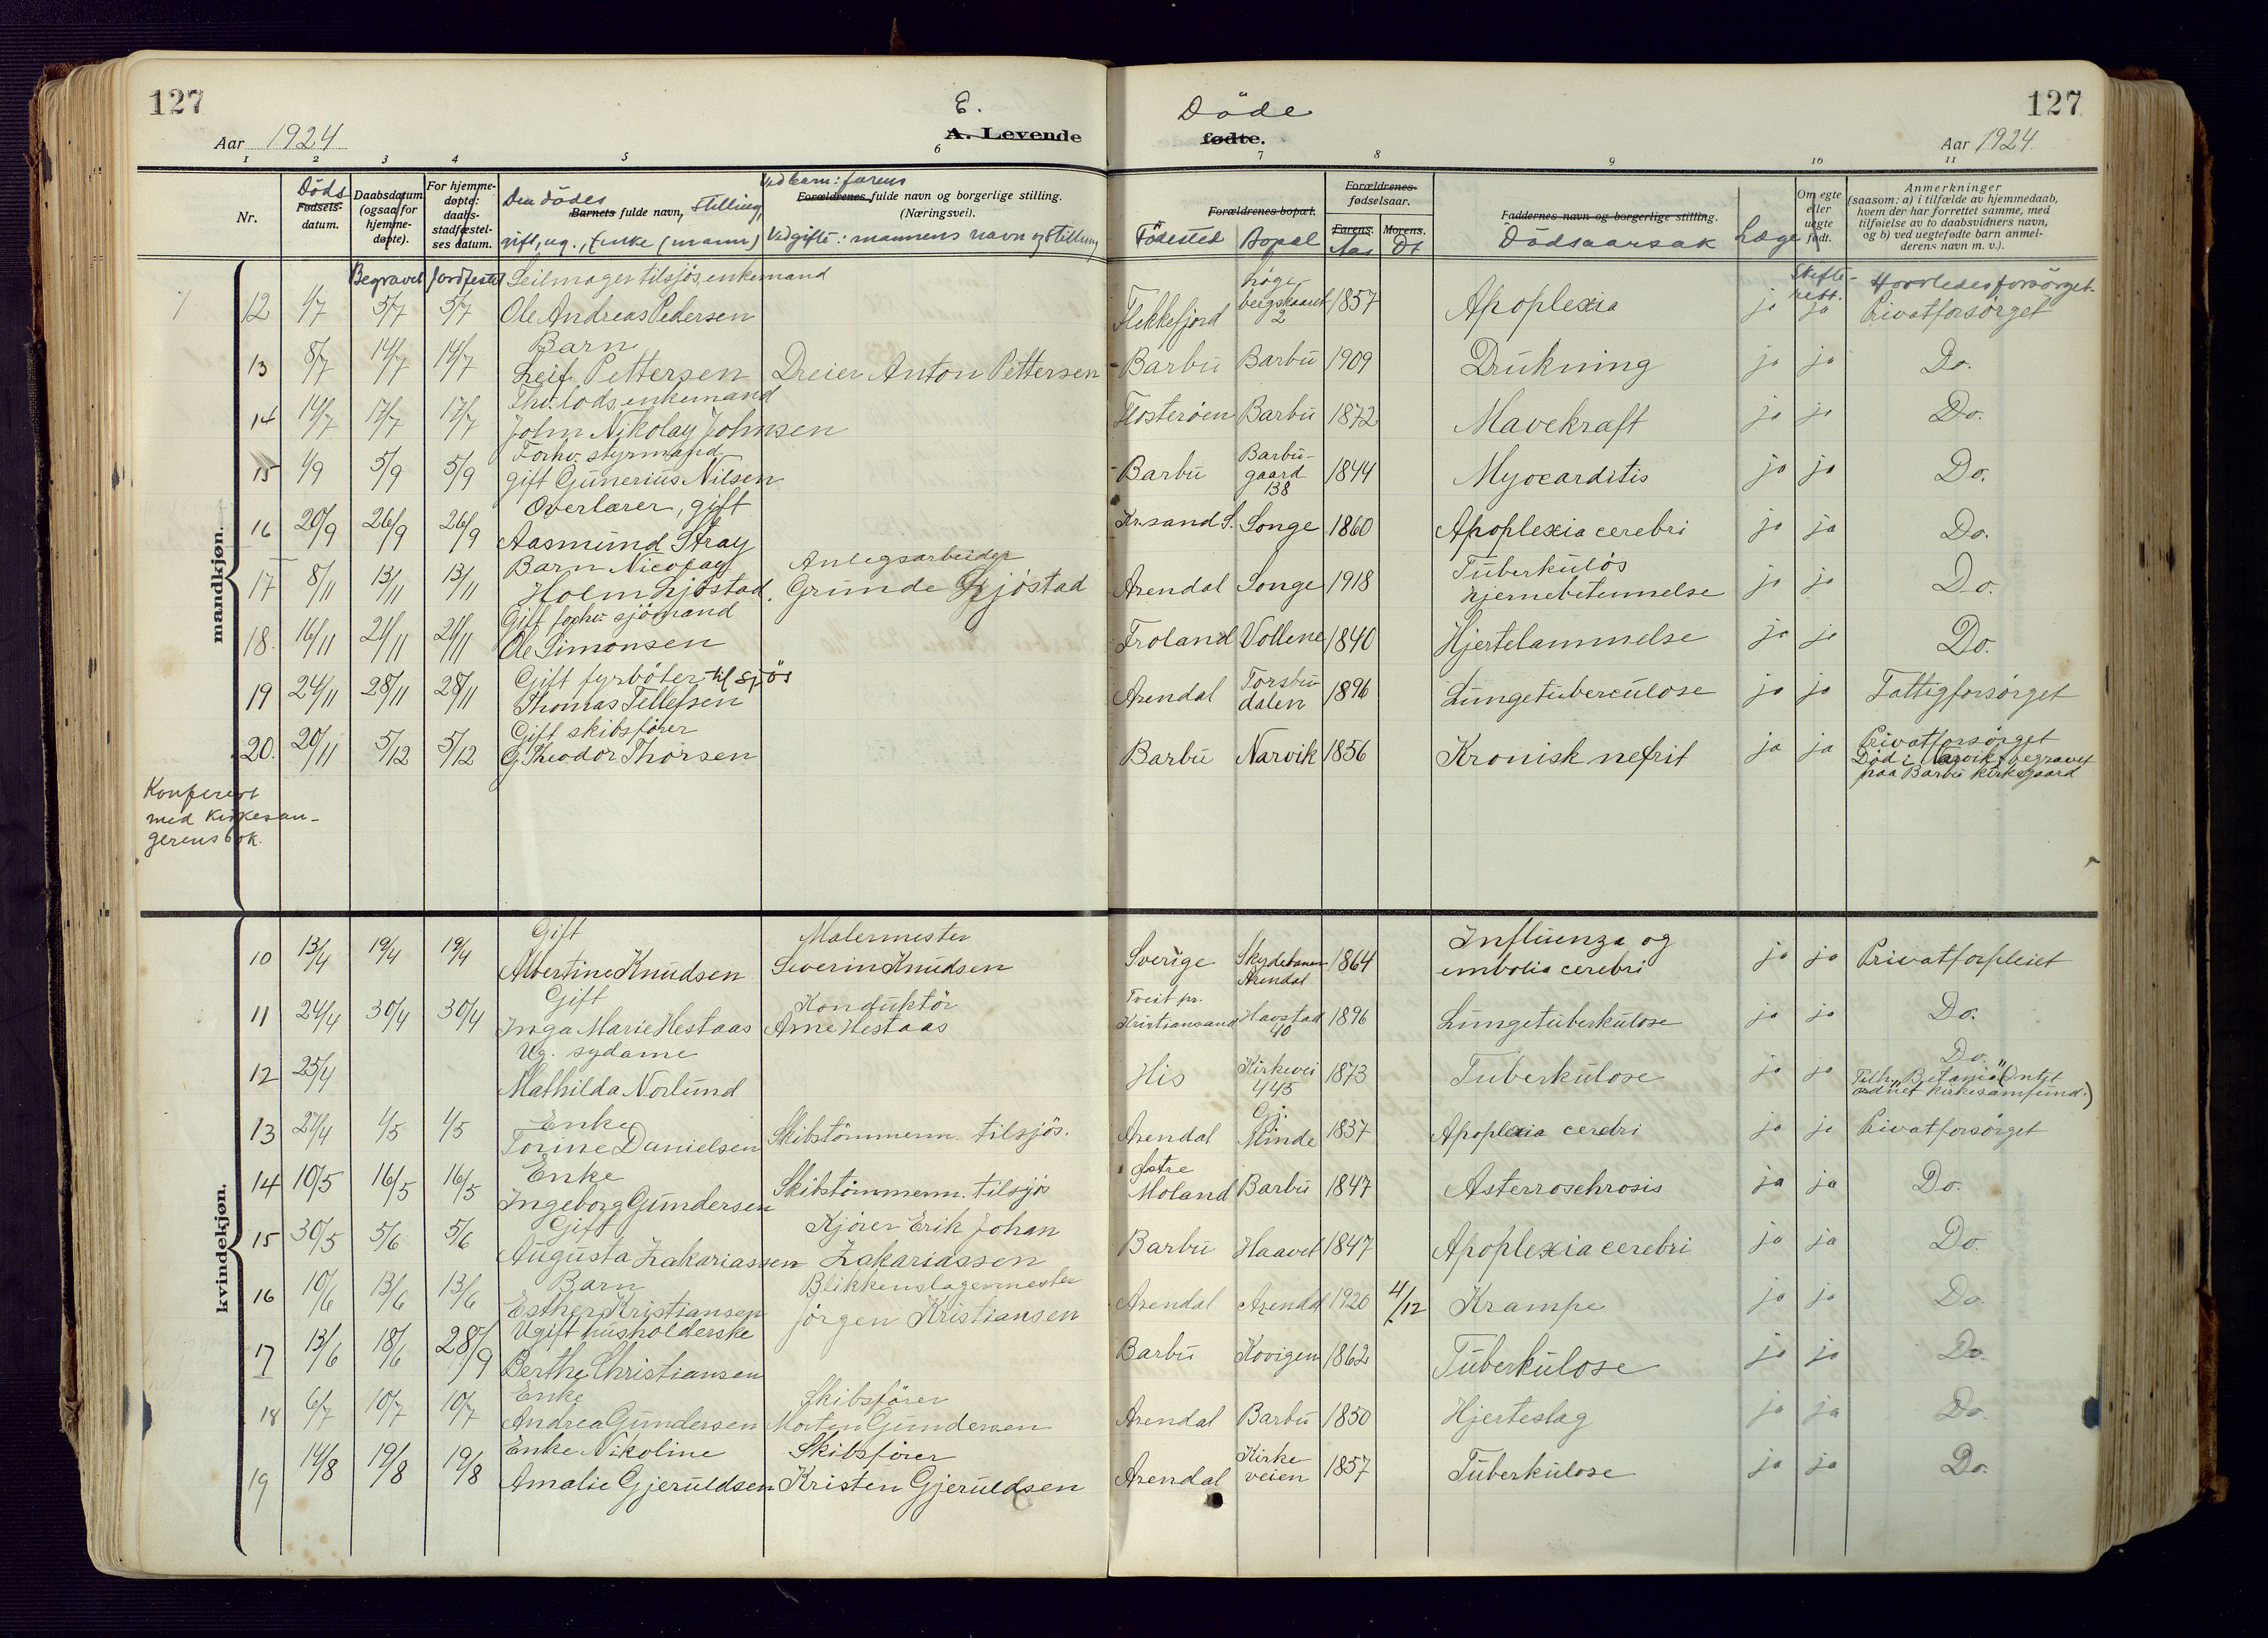 127
127
Aar 1924
E.
A. Levende
Döde
fødte.
Aar 1924.
1 2 3 4 5 6 7 8 9 10 11
Nr.
Döds
Fødsels-
datum.
Daabsdatum
(ogsaa for
hjemme-
døpte).
For hjemme-
døpte:
daabs-
stadfæstel-
ses datum.
Den dödes
Barnets fulde navn, Stilling,
gift, ug., enke (mann)
Ved barn: farens
Forældrenes fulde navn og borgerlige stilling.
(Næringsvei).
Ved gifte: mannens navn og stilling
Forældrenes bopæl.
Födested Bopæl
Forældrenes-
fødselsaar.
Farens. Morens.
Aar Dt
Faddernes navn og borgerlige stilling.
Dödsaarsak
Læge
Om egte
eller
uegte
født.
Anmerkninger
(saasom: a) i tilfælde av hjemmedaab,
hvem der har forrettet samme, med
tilføielse av to daabsvidners navn,
og b) ved uegtefødte barn anmel-
derens navn m. v.).
mandkjøn.
Begravet Jordfestet Seilmager tilsjös, enkemand Skifte- Hvorledes forsörget.
rett.
12 1/7 5/7 5/7 Ole Andreas Pedersen Flekkefjord 1857 Apoplexia ja ja Privatforsörget
Barn
13 8/7 14/7 14/7 Leif Pettersen Dreier Anton Pettersen Barbu Barbu 1909 Drukning ja ja Do.
Fhv. lods, enkemand
14 14/7 17/7 17/7 John Nikolay Johnsen Flosteröen Barbu 1872 Mavekraft ja ja Do.
Forhv. styrmand Barbu-
15 1/9 5/9 5/9 gift Gunerius Nilsen Barbu gaard 1844 Myocarditis ja ja Do.
138
Overlærer, gift
16 20/9 26/9 26/9 Aasmund Stray Kr.sand S. Songe 1860 Apoplexia cerebri ja ja Do.
Barn Nicolay Anlegsarbeider Tuberkulös
17 8/11 13/11 13/11 Holm Ljöstad. Grunde Ljöstad Arendal Songe 1918 hjernebetennelse ja ja Do.
Gift forhv. sjömand
18. 16/11 21/11 21/11 Ole Simonsen Froland Vollene 1840 Hjertelammelse ja ja Do.
Gift fyrböter til sjös Torsbu
19 24/11 28/11 28/11 Thomas Tellefsen Arendal dalen 1896 Lungetuberculose ja ja Fattigforsörget
Gift skibsförer
20. 20/11 5/12 5/12 G. Theodor Thorsen Barbu Narvik 1856 Kronisk nefrit ja ja Privatforsörget
Död i Narvik, begravet
paa Barbu kirkegaard
Konferert
med kirkesan-
gerens bok.
kvindekjøn.
Gift Malermester Influenza og
10 13/4 19/4 19/4 Albertine Knudsen Severin Knudsen Sverige Skydebanen 1864 embolia cerebri ja ja Privatforpleiet
Arendal
Gift Konduktör Tveit pr.
11 24/4 30/4 30/4 Inga Marie Hestaas Arne Hestaas Kristiansand Havstad 1896 Lungetuberkulose ja ja Do.
40
Ug. sydame Do.
12 25/4 Mathilda Norlund His Kirkevei 1873 Tuberkulose ja ja Tilh. "Betania" (Intet
445 ordnet kirkesamfund.)
Enke Gj.
13 27/4 1/5 1/5 Torine Danielsen Skibstömmerm. tilsjös. Arendal Minde 1837 Apoplexia ceredri ja ja Privatforsörget
Enke Östre
14 10/5 16/5 16/5 Ingeborg Gundersen Skibstömmerm. tilsjös Moland Barbu 1847 Asterroschrosis ja ja Do.
Gift Kjörer Erik Johan
15 30/5 5/6 5/6 Augusta Zakariassen Zakariassen Barbu Haavet 1847 Apoplexia cerebri ja ja Do.
Barn Blikkenslagermester
16 10/6 13/6 13/6 Esther Kristiansen Jörgen Kristiansen Arendal Arendal 1920 4/12 Krampe ja ja Do.
Ugift husholderske
17 13/6 18/6 28/9 Berthe Christiansen Barbu Kovigen 1862 Tuberkulose ja ja Do.
Enke Skibsförer
18 6/7 10/7 10/7 Andrea Gundersen Morten Gundersen Arendal Barbu 1850 Hjerteslag ja ja Do.
Enke Nikoline Skibsförer Kirke
19 14/8 19/8 19/8 Amalie Gjeruldsen Kristen Gjeruldsen Arendal veien 1857 Tuberkulose ja ja Do.